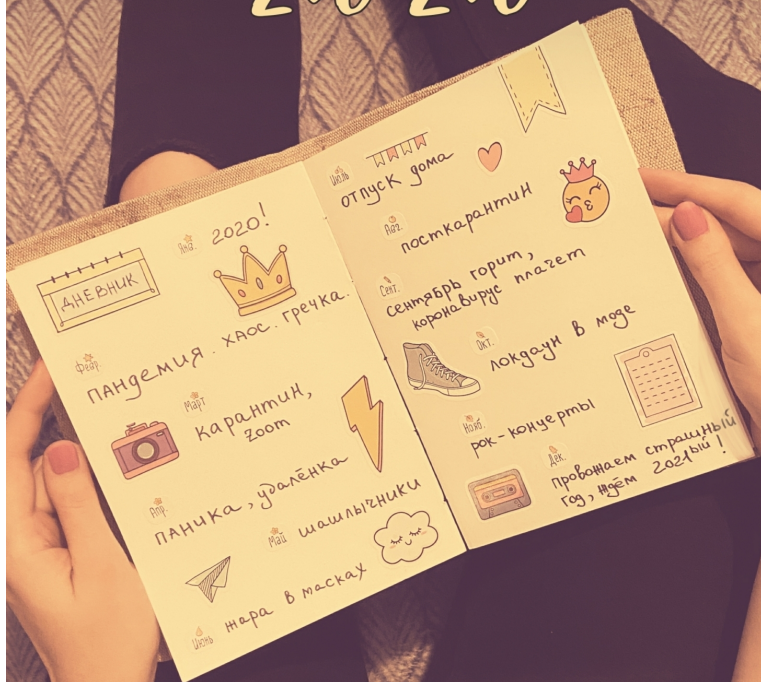 ДНЕВНИК
Янв. 2020!
Февр.
ПАНДЕМИЯ. ХАОС. ГРЕЧКА.
Март
КАРАНТИН,
zoom
Апр.
ПАНИКА, УДАЛЁНКА
Май ШАШЛЫЧНИКИ
Июнь ЖАРА В МАСКАХ
Июль
ОТПУСК ДОМА
Авг.
ПОСТКАРАНТИН
Сент.
СЕНТЯБРЬ ГОРИТ,
КОРОНАВИРУС ПЛАЧЕТ
Окт.
ЛОКДАУН В МОДЕ
Нояб.
РОК-КОНЦЕРТЫ
Дек.
ПРОВОЖАЕМ СТРАШНЫЙ
ГОД, ЖДЁМ 2021ЫЙ!